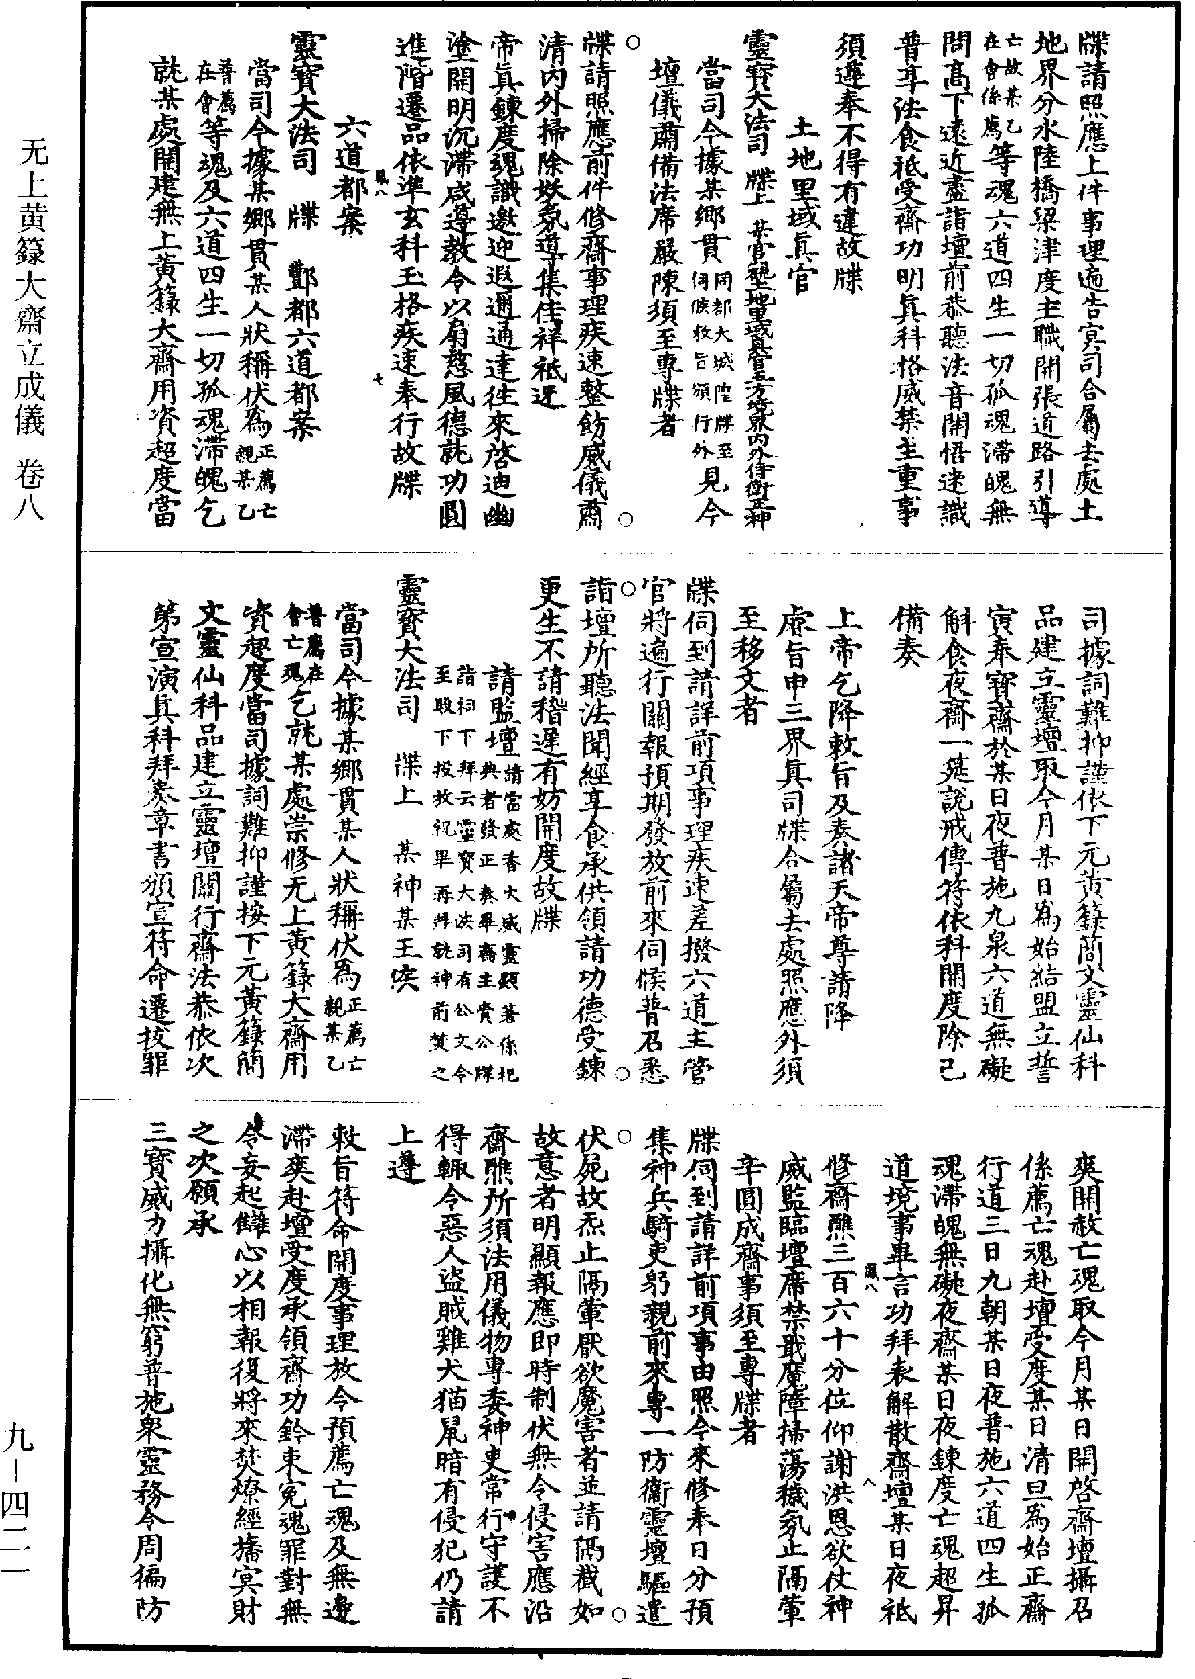 无上黃籙大齋立成儀 卷八
九—四二二
牒請照應上件事理遍告冥司合屬去處土
地界分水陸橋梁津度主職開張道路引導
亡故某乙在會係薦等魂六道四生一切孤魂滯魄無
問高下遠近盡詣壇前恭聽法音開悟迷識
普享法食祗受齋功明真科格威禁至重事
須遵奉不得有違故牒
土地里域真官
靈寶大法司 牒上 某官壇地里域真官五方境界內外侍衛正神
當司今據某鄉貫同都大城隍牒至伺候敕旨頒行外見今
壇儀肅備法席嚴陳須至專牒者
牒請照應前件修齋事理疾速整飭威儀肅
清內外掃除妖氛導集佳祥祗迓
帝真鍊度魂識邀迎遐邇通達往來啓迪幽
塗開明沉滯咸遵教令以扇慈風德就功圓
進階遷品依準玄科玉格疾速奉行故牒
六道都案
靈寶大法司 牒 酆都六道都案
當司今據某鄉貫某人狀稱伏為正薦亡親某乙
普薦在會等魂及六道四生一切孤魂滯魄乞
就某處開建無上黃籙大齋用資超度當
司據詞難抑謹依下元黃籙簡文靈仙科
品建立靈壇取今月某日為始結盟立誓
寅奉寶齋於某日夜普施九泉六道無礙
斛食夜齋一筵說戒傳符依科開度除已
備奏
上帝乞降敕旨及奏諸天帝尊請降
睿旨申三界真司牒合屬去處照應外須
至移文者
牒伺到請詳前項事理疾速差撥六道主管
官將遍行關報預期發放前來伺候普召悉
詣壇所聽法聞經享食承供領請功德受鍊
更生不請稽遲有妨開度故牒
請監壇請當處香火威靈顯著係祀典者發正奏畢齋主賫公牒
詣祠下拜云靈寶大法司有公文令至殿下投救祝畢再拜就神前焚之
靈寶大法司 牒上 某神某王侯
當司今據某鄉貫某人狀稱伏為正薦亡親某乙
普薦在會亡魂乞就某處崇修无上黃籙大齋用
資超度當司據詞難抑謹按下元黃籙簡
文靈仙科品建立靈壇關行齋法恭依次
第宣演真科拜奏章書頒宣符命遷拔罪
爽開赦亡魂取今月某日開啓齋壇攝召
係薦亡魂赴壇受度某日清旦為始正齋
行道三日九朝某日夜普施六道四生孤
魂滯魄無礙夜齋某日夜鍊度亡魂超昇
道境事畢言功拜表解散齋壇某日夜祗
修齋醮三百六十分位仰謝洪恩欲仗神
威監臨壇席禁戢魔障掃蕩穢氛止隔葷
辛圓成齋事須至專牒者
牒伺到請詳前項事由照今來修奉日分預
集神兵騎吏躬親前來專一防衛靈壇驅遣
伏屍故炁止隔葷厭欲魔害者並請隔截如
故意者明顯報應即時制伏無令侵害應沿
齋醮所須法用儀物專委神吏常行守護不
得輒令惡人盜賊雞犬猫鼠暗有侵犯仍請
上遵
敕旨符命開度事理放令預薦亡魂及無邊
滯爽赴壇受度承領齋功鈐束冤魂罪對無
令妄起讎心以相報復將來焚燎經旛冥財
之次願承
三寶威力攝化無窮普施衆靈務令周徧防